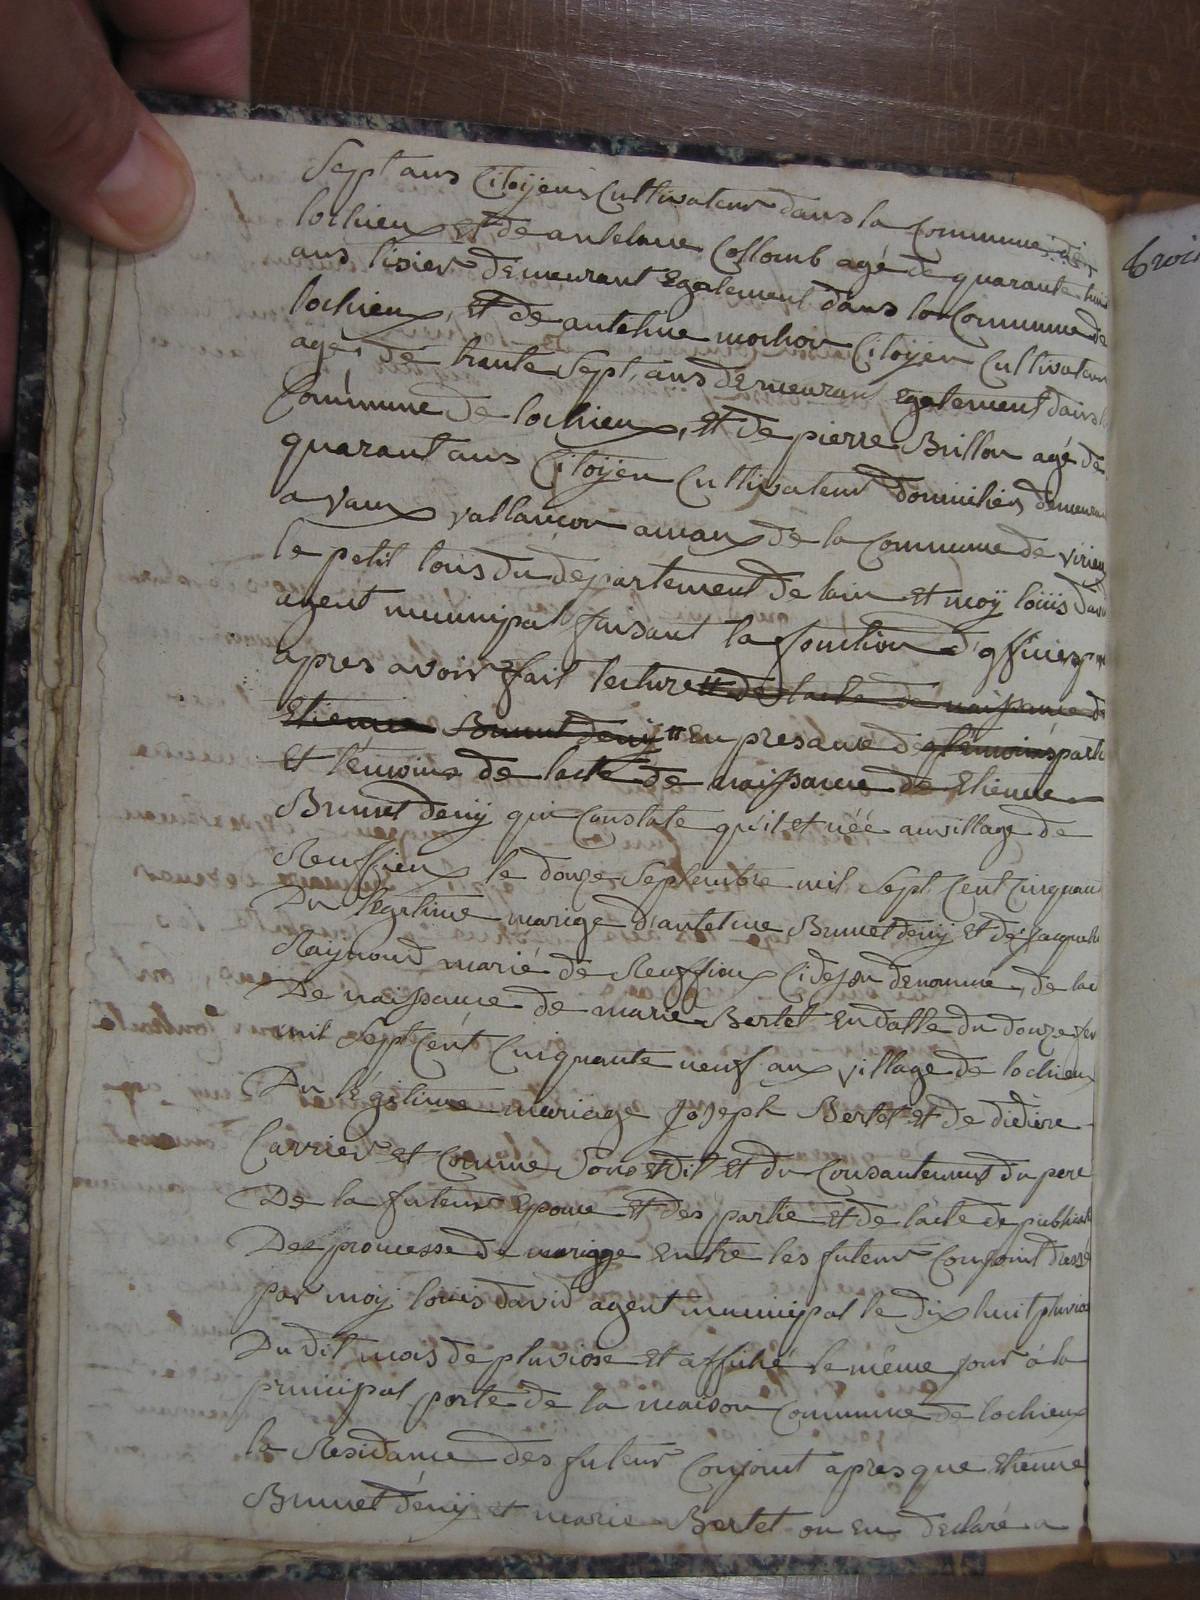 Sept ans Citoÿens Cultivateur dans la Commune de
lochieu et de antelme Collomb agé de quarante huit
ans tisier demeurant Egalement dans la Commune de
lochieu, et de antelme mochon Citoÿen Cultivateur
agé de trante Sept ans demeurant Egalement dans la
Commune de lochieu, et de pierre Brillon agé de
quarant ans Citoÿen Cultivateur domicilier demeurant
a vaux vallancon de la Commune de virieu
le petit tous du departement de lain et moÿ loüis david
agent municipal faisant la fonction d'officier
apres avoir fait lecture de lacte de naissance de
Etienne Brunet denÿ En presance des temoins partie
Et temoins de lacte de naissance de Etienne
Brunet denÿ qui Constate qu'il et née au village de
Reuffieu le douze Septembre mil Sept Cent Cinquant
Du legitime marige d'antelme Brunet denÿ et de Jacqueline
Raymond marié de Reuffieu Ci desu denommé, de lac
De naissance de marie Bertet En datte du douze fev
mil Sept Cent Cinquante neuf au village de lochieu
Du légitime mariage Joseph Bertet et de didiere
Carrier et Comme Sous et Dit et du Consantement du pere
De la future Epouse et des partie et de lacte de publicat
Des promesse de mariage Entre les futeur Conjoint dressé
par moÿ louis david agent municipal le dix huit pluviose
Du dit mois de pluviose et affiché le même jour à la
principal porte de la maison Commune de lochieu
la Residance des futeur Conjoint apres que Etienne
Brunet dénÿ et marie Bertet on eu declaré a
trois